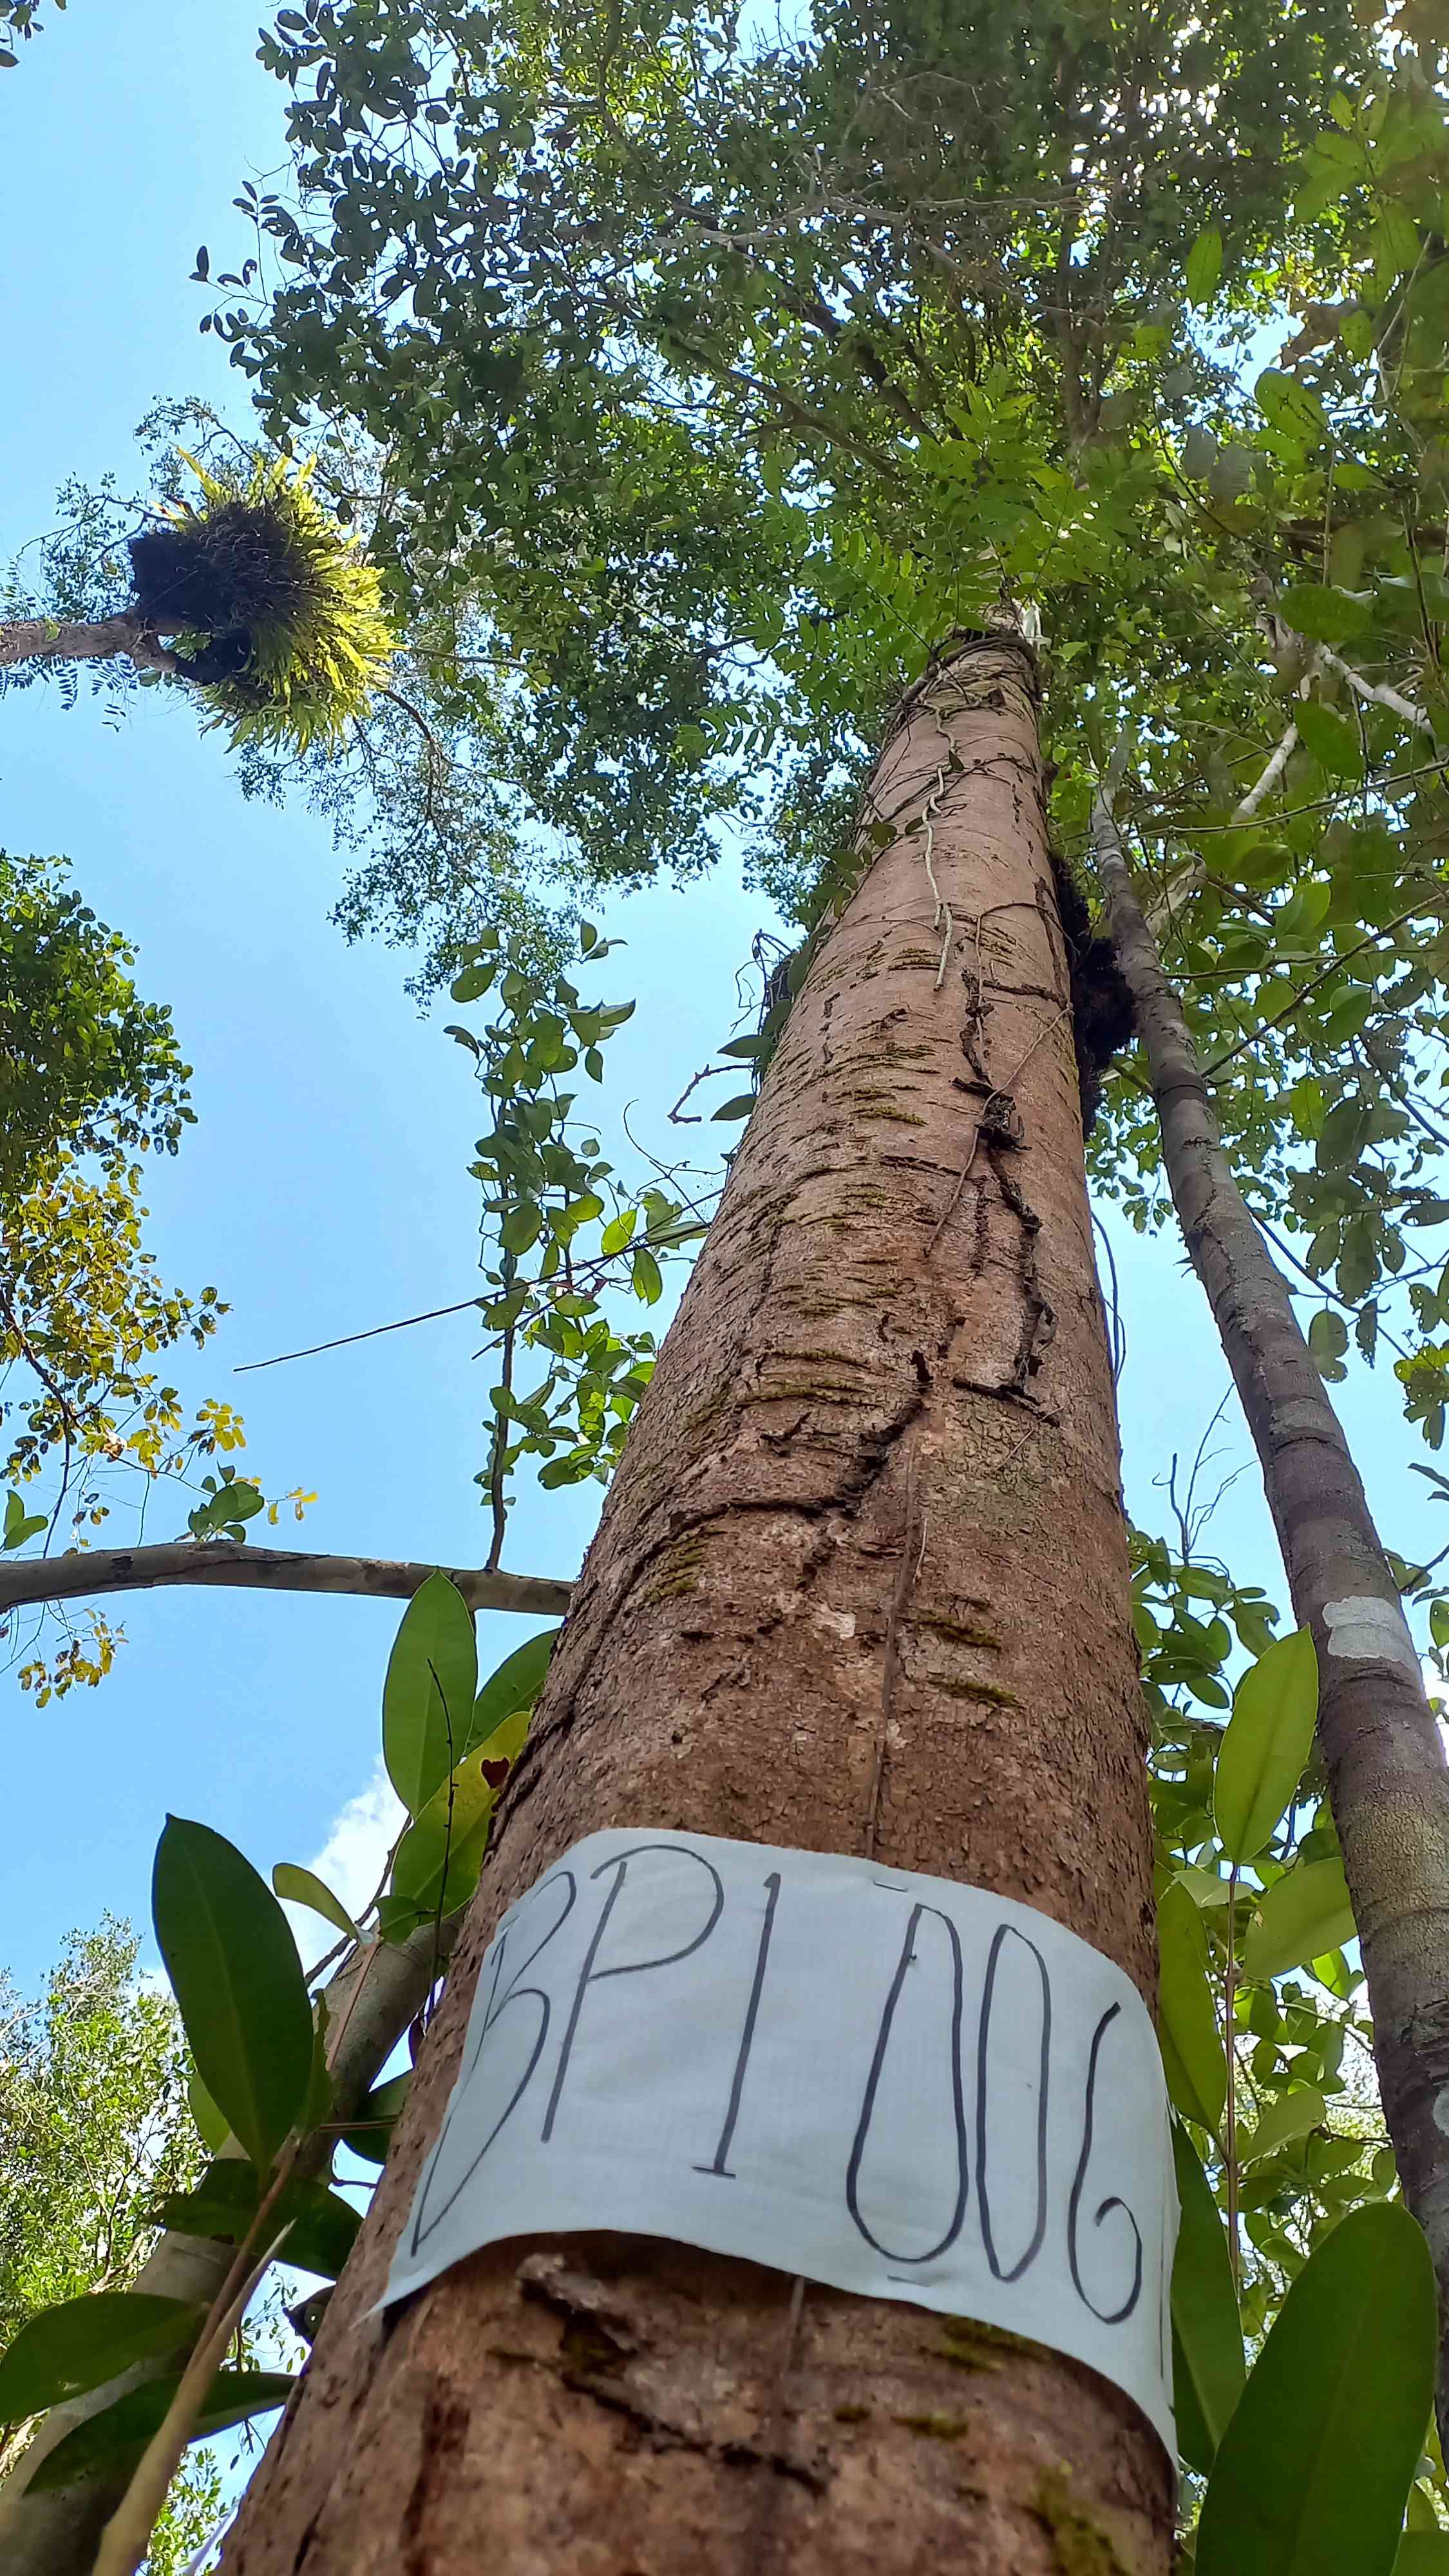 BPI 006